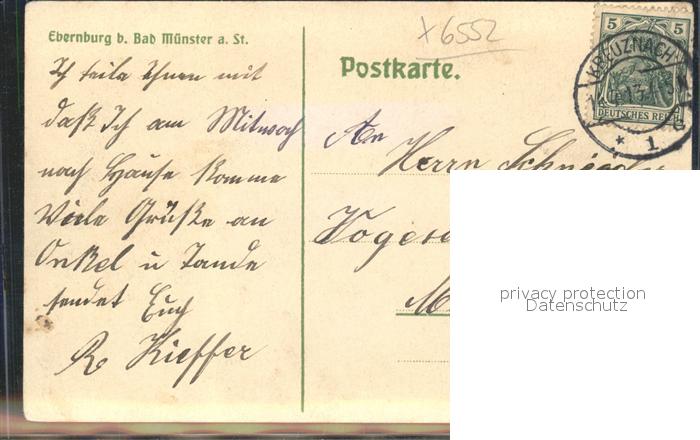 Ebernburg b. Bad Münster a. St.
X 6552
Postkarte.
5 5
KREUZNACH
DEUTSCHES REICH
* 1
Ich teile Ihnen mit
daß Ich am Mitwoch
nach Hause komme
Viele Grüße an
Onkel u Tande
sendet Euch
R Kieffer
An
Herrn
privacy protection
Datenschutz